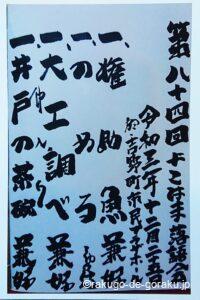 第八十四回よこはま落語会
令和三年十二月二十五日
於 吉野町市民プラザホール
一、権助魚 兼好
一、一のめろう
一、大工調べ 兼好
仲入り
一、井戸の茶碗 兼好
©rakugo-de-goraku.jp